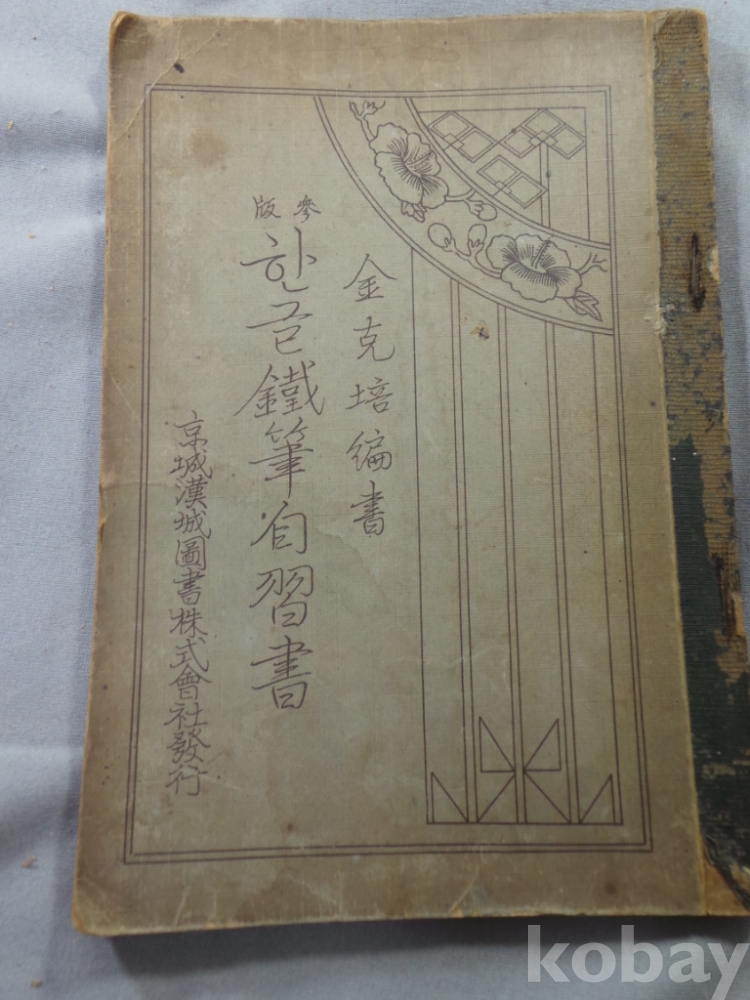 金克培編書
參版
한글鐵筆自習書
京城漢城圖書株式會社發行
kobay